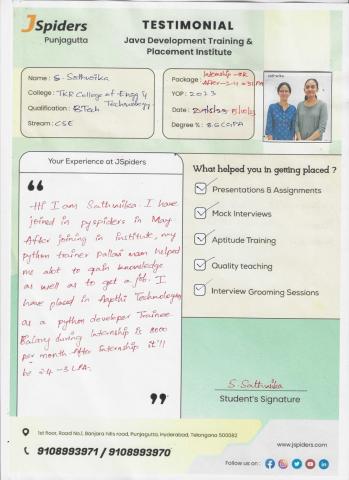 JSpiders
Punjagutta
TESTIMONIAL
Java Development Training &
Placement Institute
Name : S. Sathwika
College : TKR College of Engg & Technology
Qualification : BTech
Stream : CSE
Package : Internship - 8K
After - 2.4 - 3LPA
YOP : 2023
Date :
Degree % : 8.5 CGPA
sathwika
Your Experience at JSpiders
Hi I am Sathwika. I have
joined in pyspiders in May
After joining in institute, my
python trainer pallavi mam helped
me alot to gain knowledge
as well as to get a job. I
have placed in Aapthi Technologies
as a python developer Trainee
Salary during Internship is 8000
per month After Internship it'll
be 2.4 - 3 LPA.
What helped you in getting placed ?
Presentations & Assignments
Mock Interviews
Aptitude Training
Quality teaching
Interview Grooming Sessions
S. Sathwika
Student's Signature
1st floor, Road No.1, Banjara hills road, Punjagutta, Hyderabad, Telangana 500082
9108993971 / 9108993970
www.jspiders.com
Follow us on :